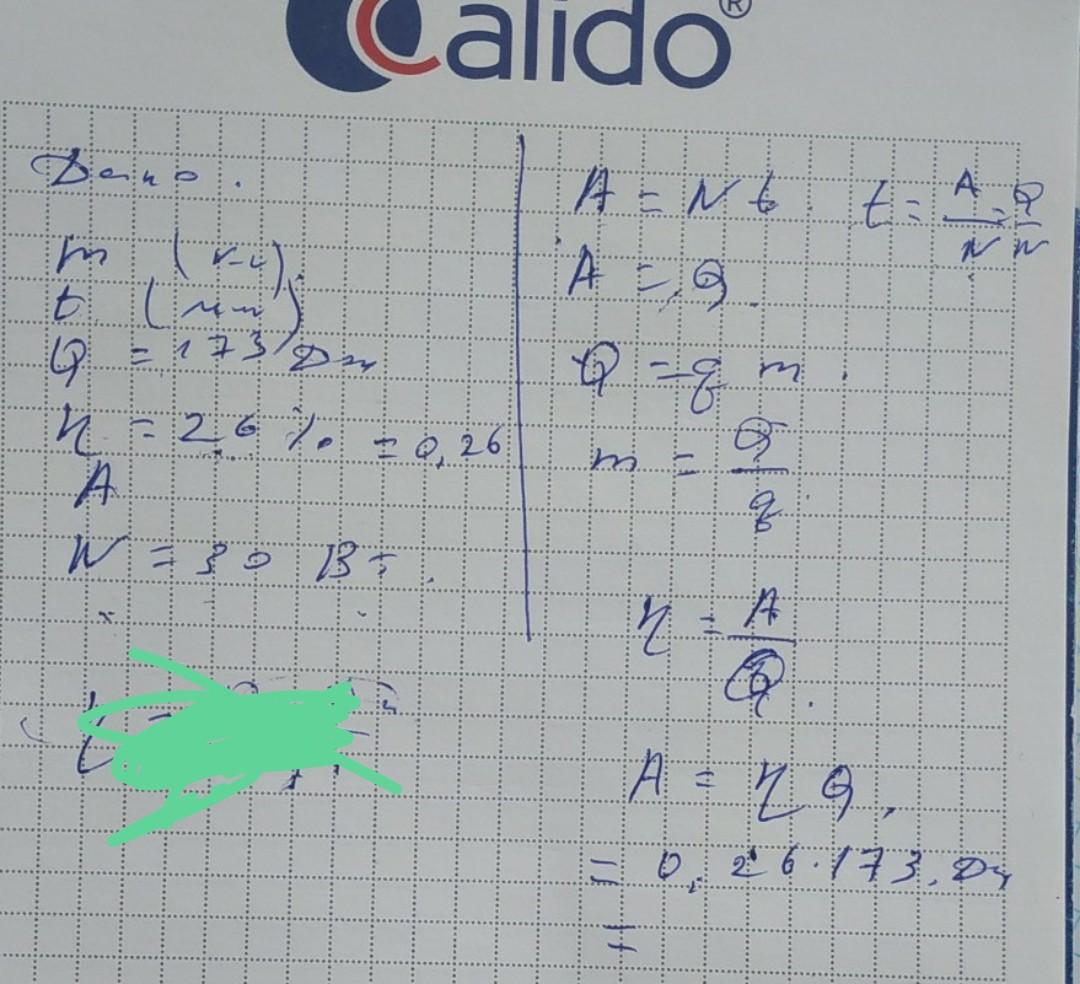 Calido®
Дано.
m (кг)
t (мин)
Q = 173 Дж
η = 26 % = 0,26
A
N = 30 Вт.
A = Nt. t = A/N = Q/N
A = Q.
Q = q m.
m = Q/q
η = A/Q.
A = ηQ,
= 0,26·173. Дж
=